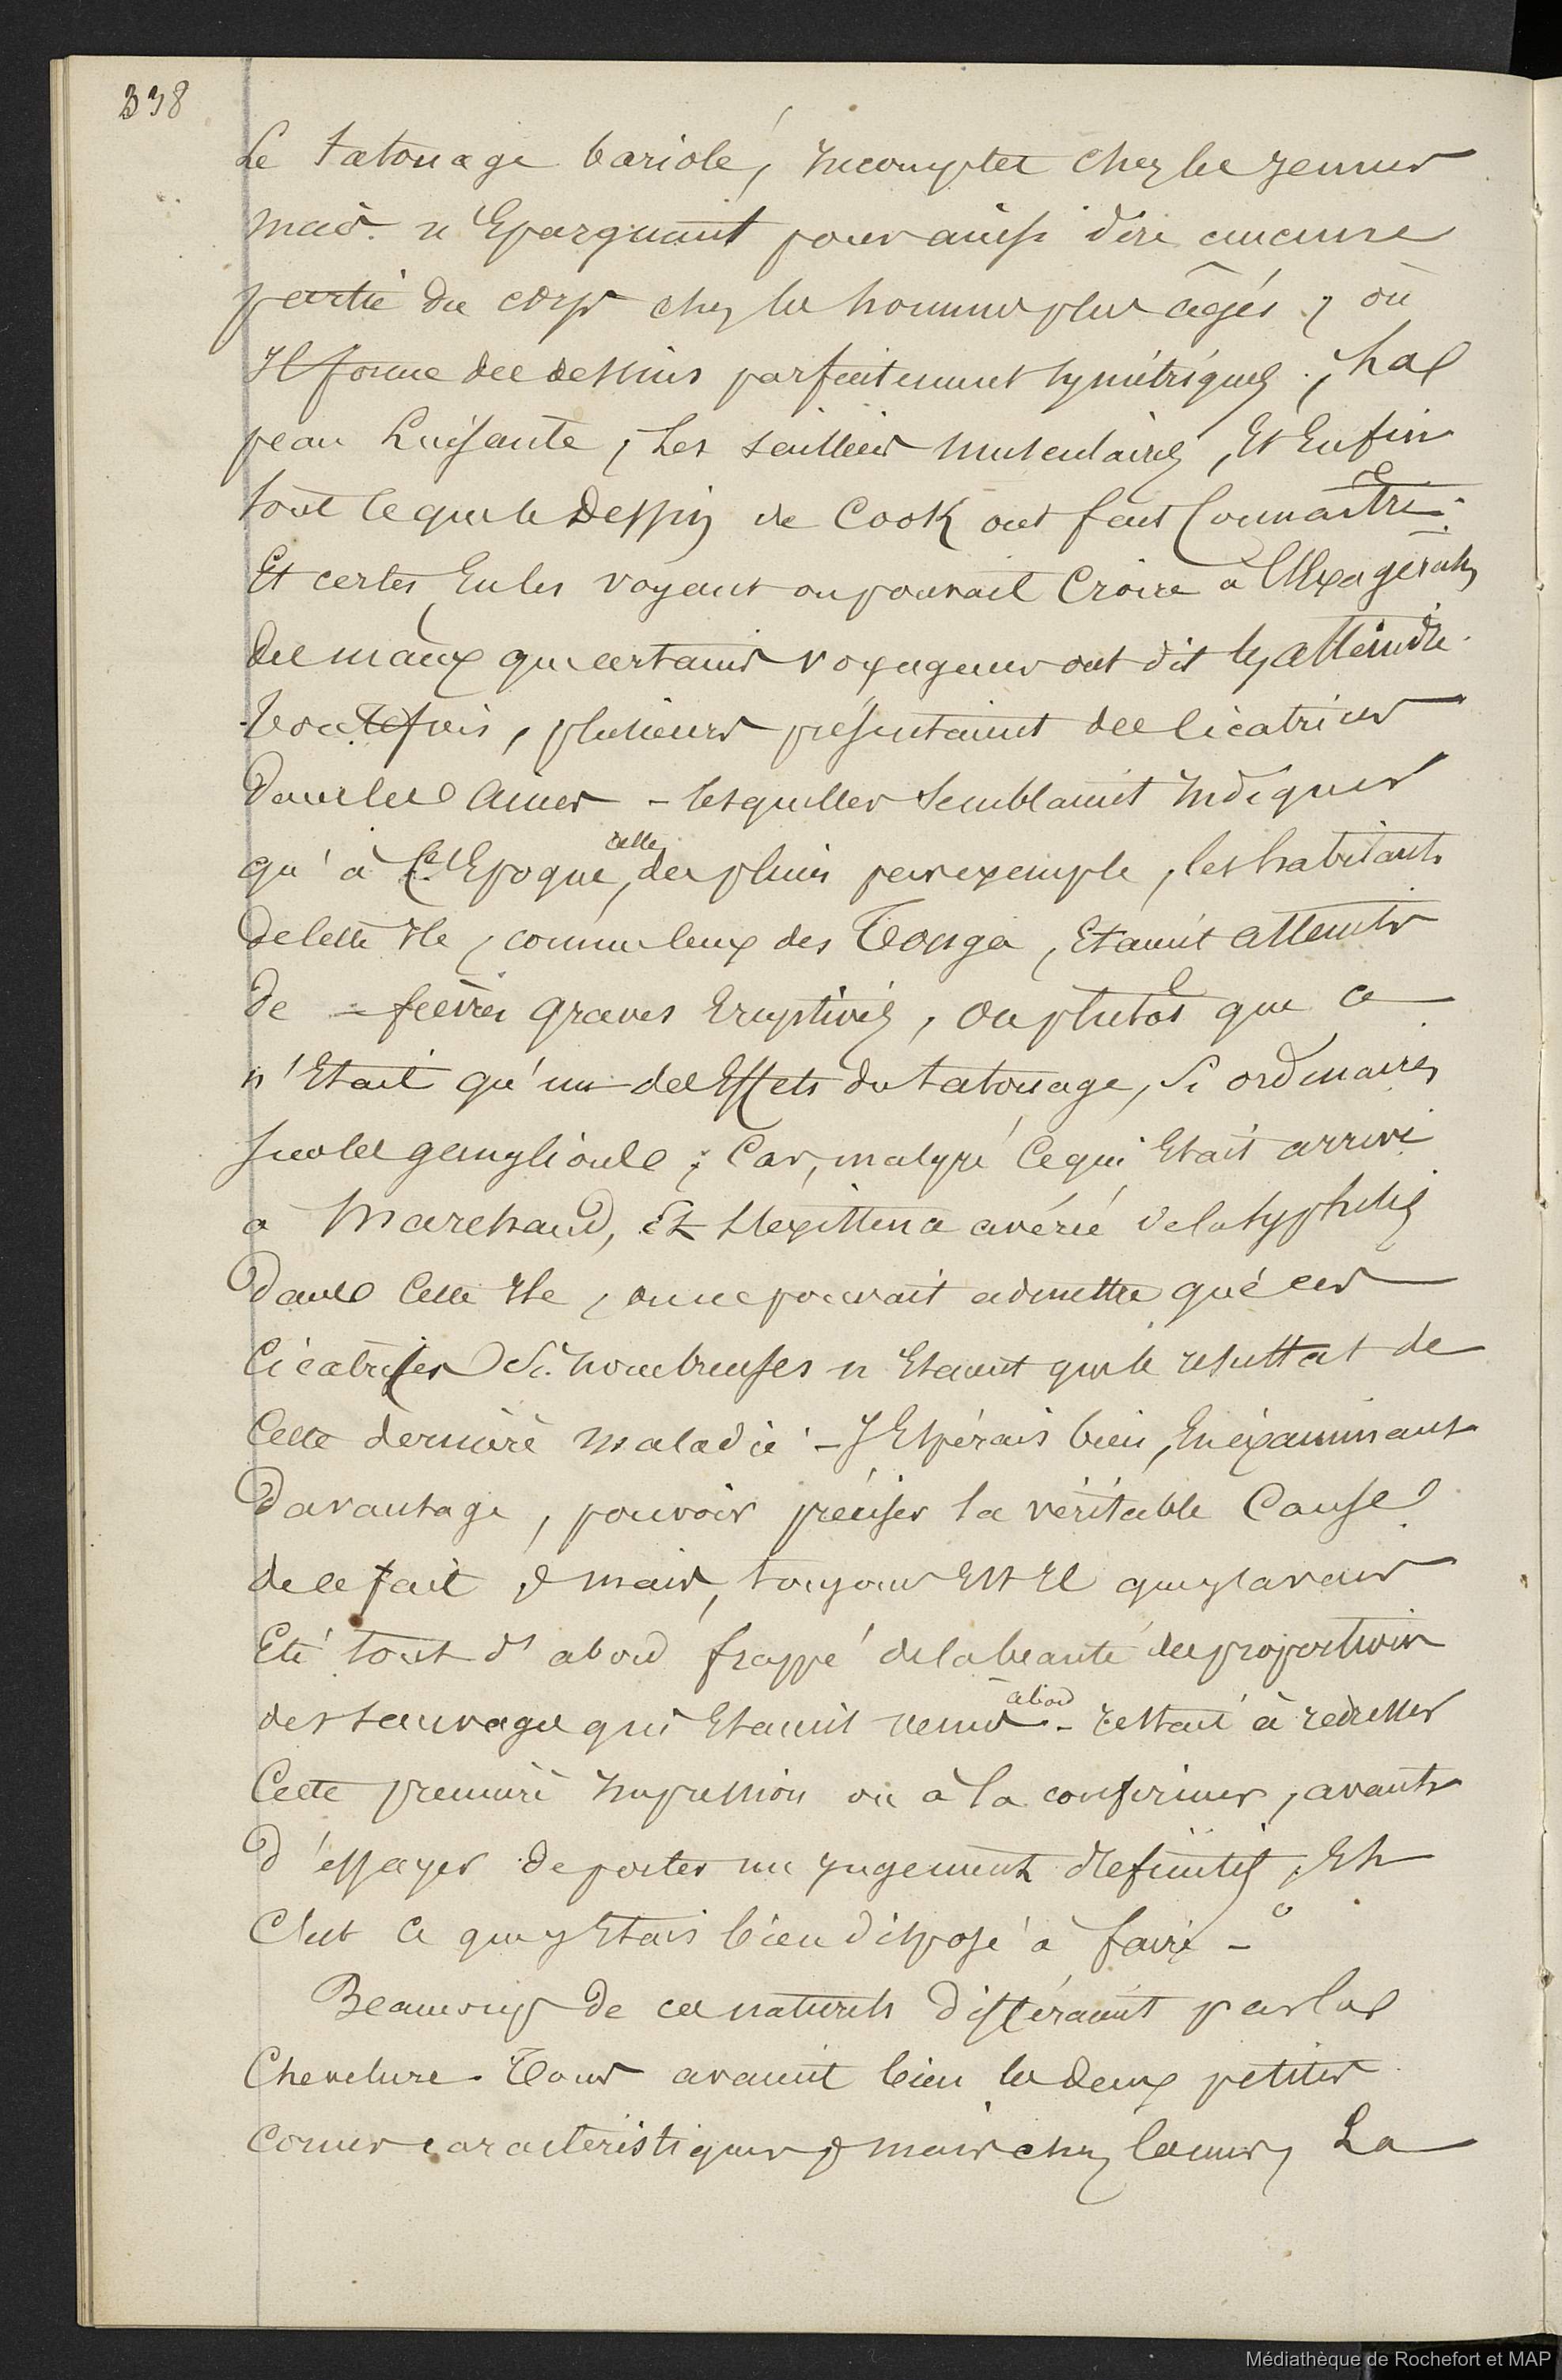 338
Le tatouage bariolé, Incomplet chez les Jeunes
mais n'Epargnant pour ainsi dire aucune
partie du corps chez les hommes plus âgés, où
Il forme des dessins parfaitement symétriques ; La
peau Luisante, Les saillies musculaires, Et Enfin
tout ce que les Dessins de Cook ont fait Connaître.
Et certes, En les voyant on pouvait Croire à l'Exagération
des maux que certains voyageurs ont dit les atteindre.
Toutefois, plusieurs présentaient des cicatrices
dans les Aines - lesquelles semblaient Indiquer
qu'à l'Epoque, celle des pluies par exemple, les habitants
de cette Ile, comme ceux des Tonga, Etaient atteints
de fièvres graves Eruptives, ou plutôt que ce
n'Etait qu'un des Effets du tatouage, si ordinaires
sur les ganglions ; Car, malgré Ce qui Etait arrivé
à Marchand, Et l'Existence avérée de la syphilis
dans Cette Ile, on ne pouvait admettre que ces
Cicatrices si nombreuses n'Etaient que le résultat de
Cette dernière maladie - J'Espérais bien, En éxaminant
davantage, pouvoir préciser la véritable Cause
de ce fait ; mais, toujours Est Il que j'avais
Eté tout d'abord frappé de la beauté des proportions
des sauvages qui Etaient venus abord - restait à redresser
Cette première Impression ou à la confirmer, avant
d'essayer de porter un jugement définitif, Et
C'est ce que j'Etais bien disposé à faire -
Beaucoup de ces naturels différaient par la
Chevelure. Tous avaient bien les deux petites
cornes caractéristiques ; mais chez les uns, La